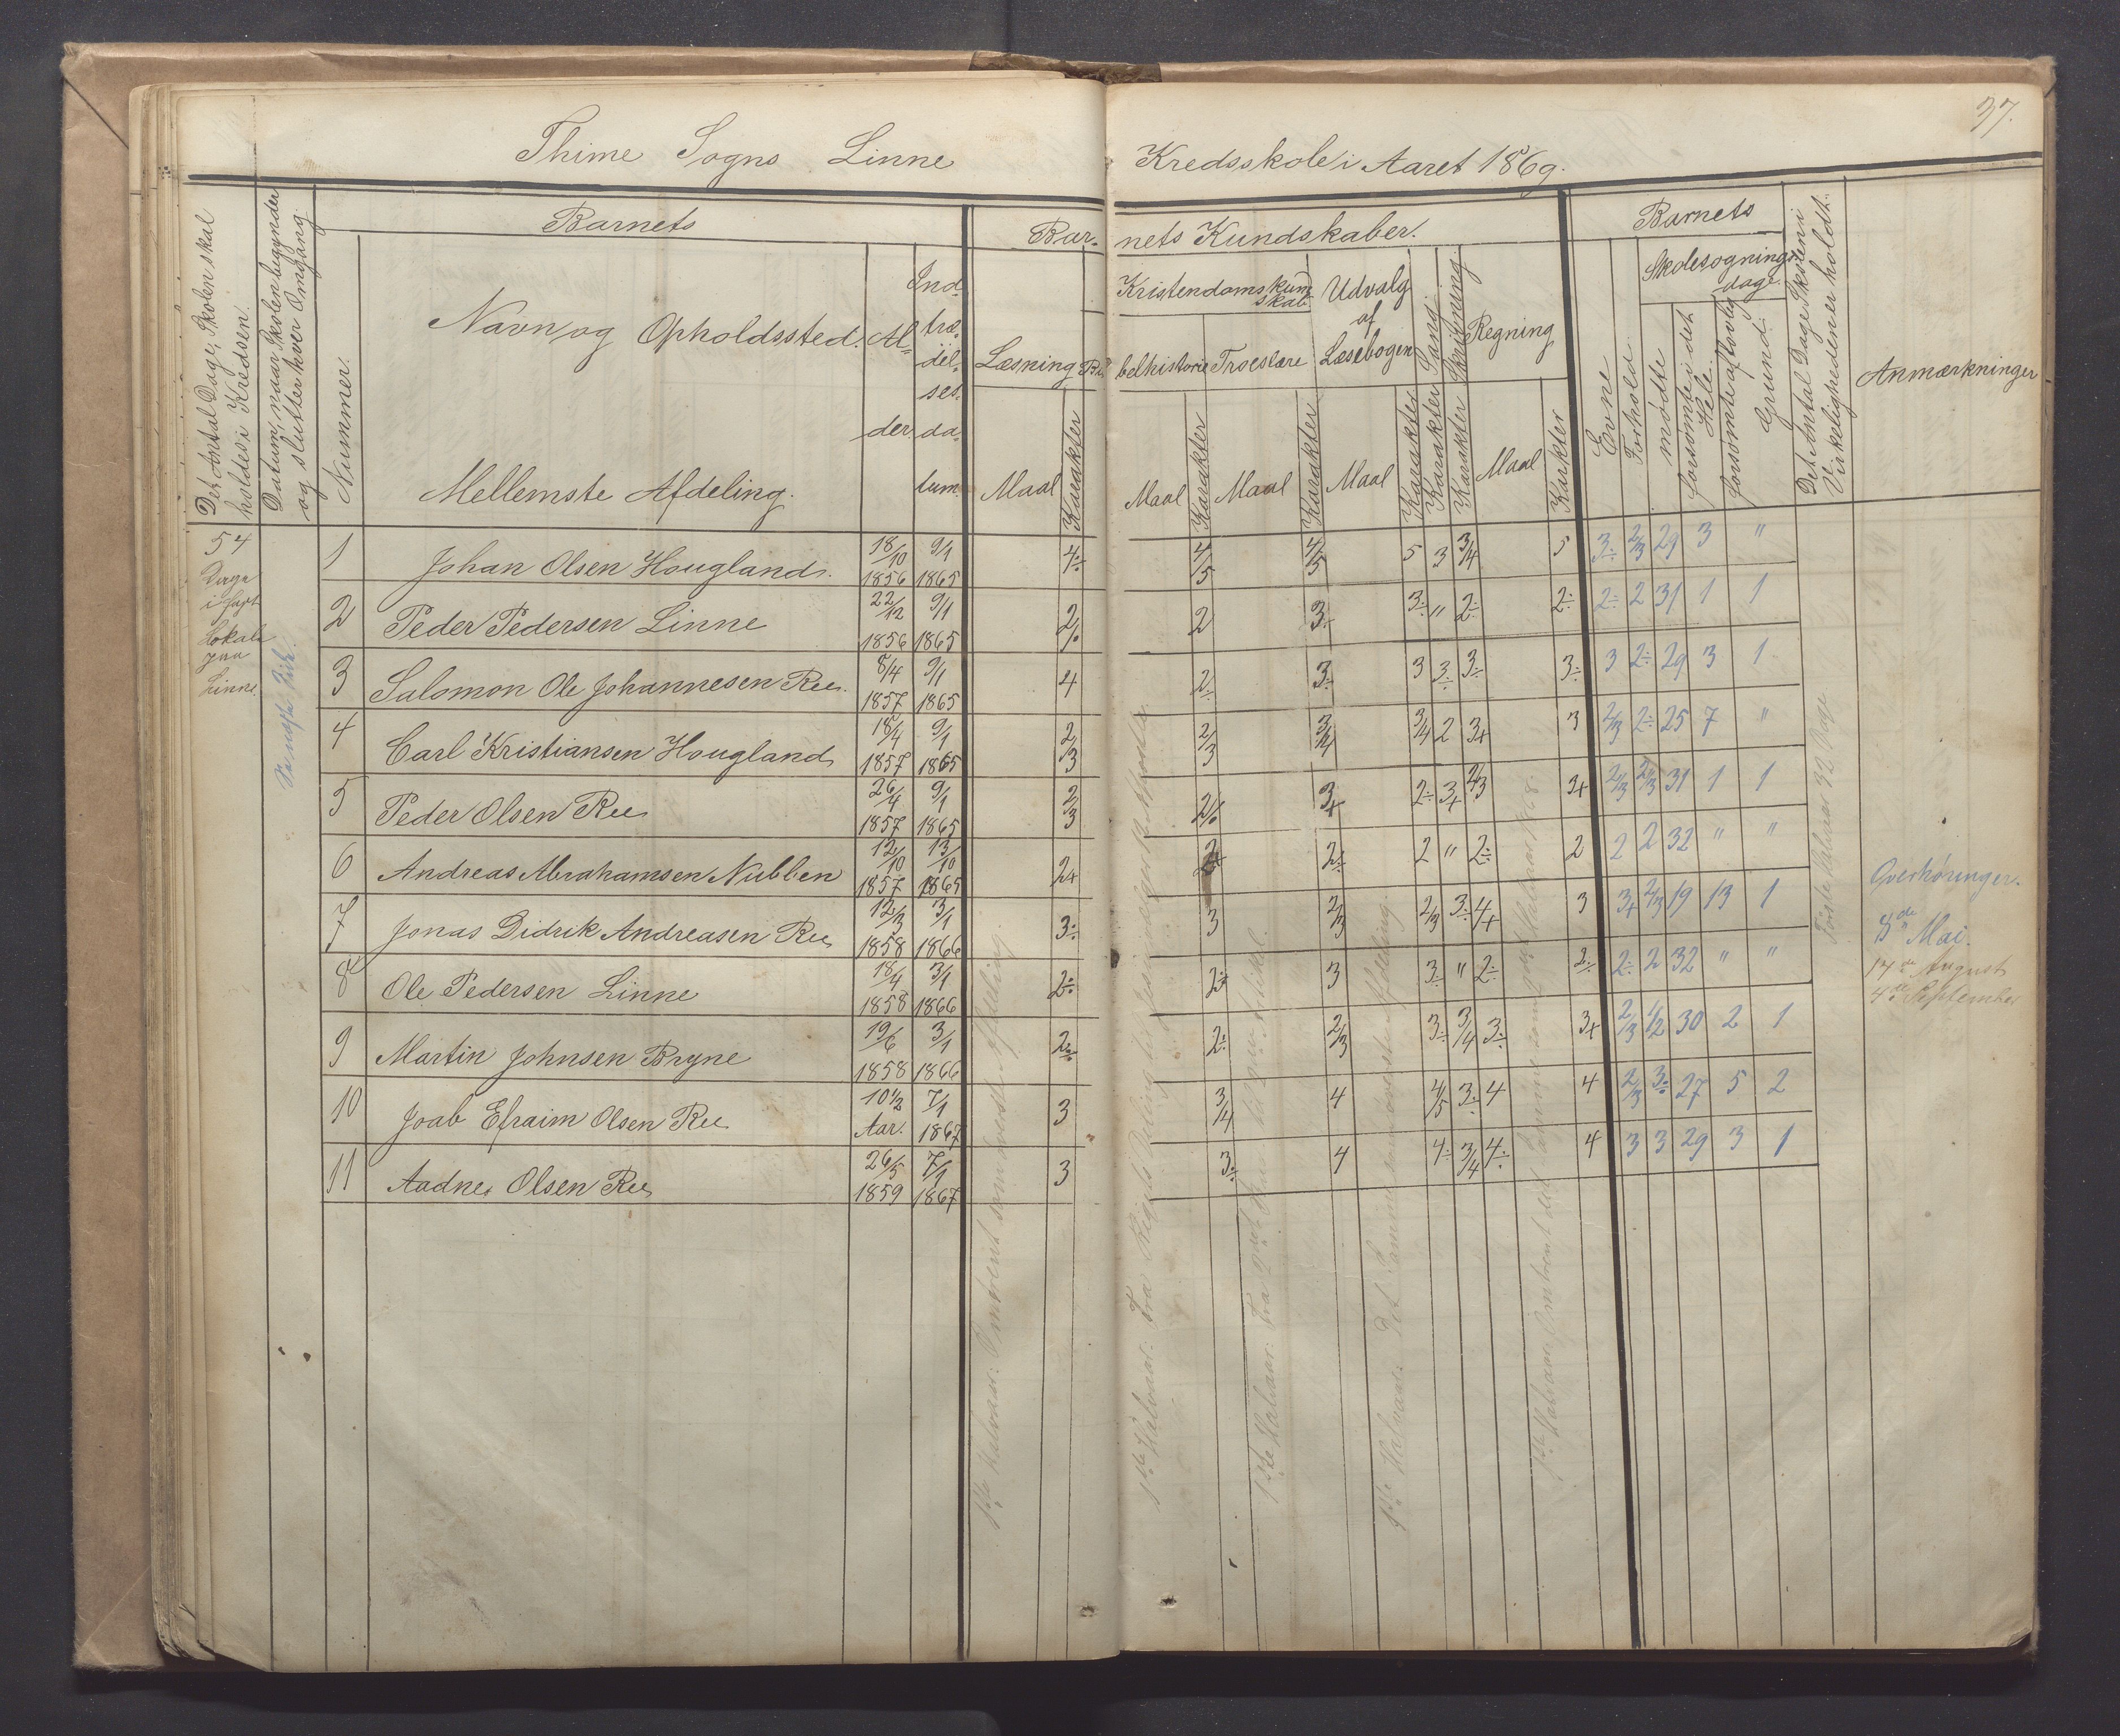 37.
Thime Sogns Linne Kredsskole i Aaret 1869.
Det Antal Dage, Skolen skal holdes i Kredsen.
Datum, naar Skolen begynder og slutter hver Omgang.
Barnets
Nummer.
Navn og Opholdssted.
Mellemste Afdeling.
Al-
der
Ind-
træ-
del-
ses-
da-
tum.
Bar- nets Kundskaber.
Læsning
Kristendomskund
skab
Bi belhistorie
Troeslære
Udvalg
af
Læsebogen
Sang
Skrivning
Regning
Maal Karakter Maal Karakter Maal Karakter Maal Karakter Karakter Karakter Maal Karkter
Barnets
Evne
Forhold.
Skolesøgnings
dage.
mødte
forsømte i det Hele
forsømte af lovlig Grund.
Det Antal Dage Skolen i Virkeligheden er holdt.
Anmærkninger
54
Dage
i fast
Lokale
paa
Linne.
1 Johan Olsen Hougland. 18/10 1856 9/1 1865 4÷ 4/5 4/5 5 3 3/4 5 3÷ 2/3 29 3 "
2 Peder Pedersen Linne 22/12 1856 9/1 1865 2÷ 2 3÷ 3÷ " 2÷ 2÷ 2÷ 2 31 1 1
3 Salomon Ole Johannesen Ree. 8/4 1857 9/1 1865 4 2÷ 3÷ 3 3÷ 3÷ 3÷ 3 2÷ 29 3 1
4 Carl Kristiansen Hougland 18/4 1857 9/1 1865 2/3 2/3 3/4 3/4 2 3+ 3 2/3 2÷ 25 7 "
5 Peder Olsen Ree 26/4 1857 9/1 1865 2/3 2÷ 3+ 2÷ 3+ 2/3 3+ 2/3 2/3 31 1 1
6 Andreas Abrahamsen Nubben 12/10 1857 13/10 1865 2+ 2+ 2÷ 2 " 2÷ 2 2 2 32 " "
7 Jonas Didrik Andreasen Ree 12/3 1858 3/1 1866 3÷ 3 2/3 2/3 3÷ 4+ 3 3+ 2/3 19 13 1
8 Ole Pedersen Linne 18/4 1858 3/1 1866 2÷ 2÷ 3 3÷ " 2÷ 2÷ 2÷ 2 32 " "
9 Martin Johnsen Bryne 19/6 1858 3/1 1866 2÷ 2÷ 2/3 3÷ 3/4 3÷ 3+ 2/3 1/2 30 2 1
10 Joab Efraim Olsen Ree 10½ Aar. 7/1 1867 3 3/4 4 4/5 3÷ 4 4 2/3 3÷ 27 5 2
11 Aadne Olsen Ree 26/5 1859 7/1 1867 3 3÷ 4 4÷ 3/4 4÷ 4 3 3 29 3 1
1ste Halvaar: Omtrent som nederste Afdeling.
1ste Halvaar: Fra Rigets Deling til
1ste Halvaar: Fra 2den
1ste Halvaar: Det Samme som øverste Afdeling.
1ste Halvaar: Omtrent det Samme som Halvaar 1868.
Første Halvaar 32 Dage
Overhøringer.
8de Mai.
17de August
4de September